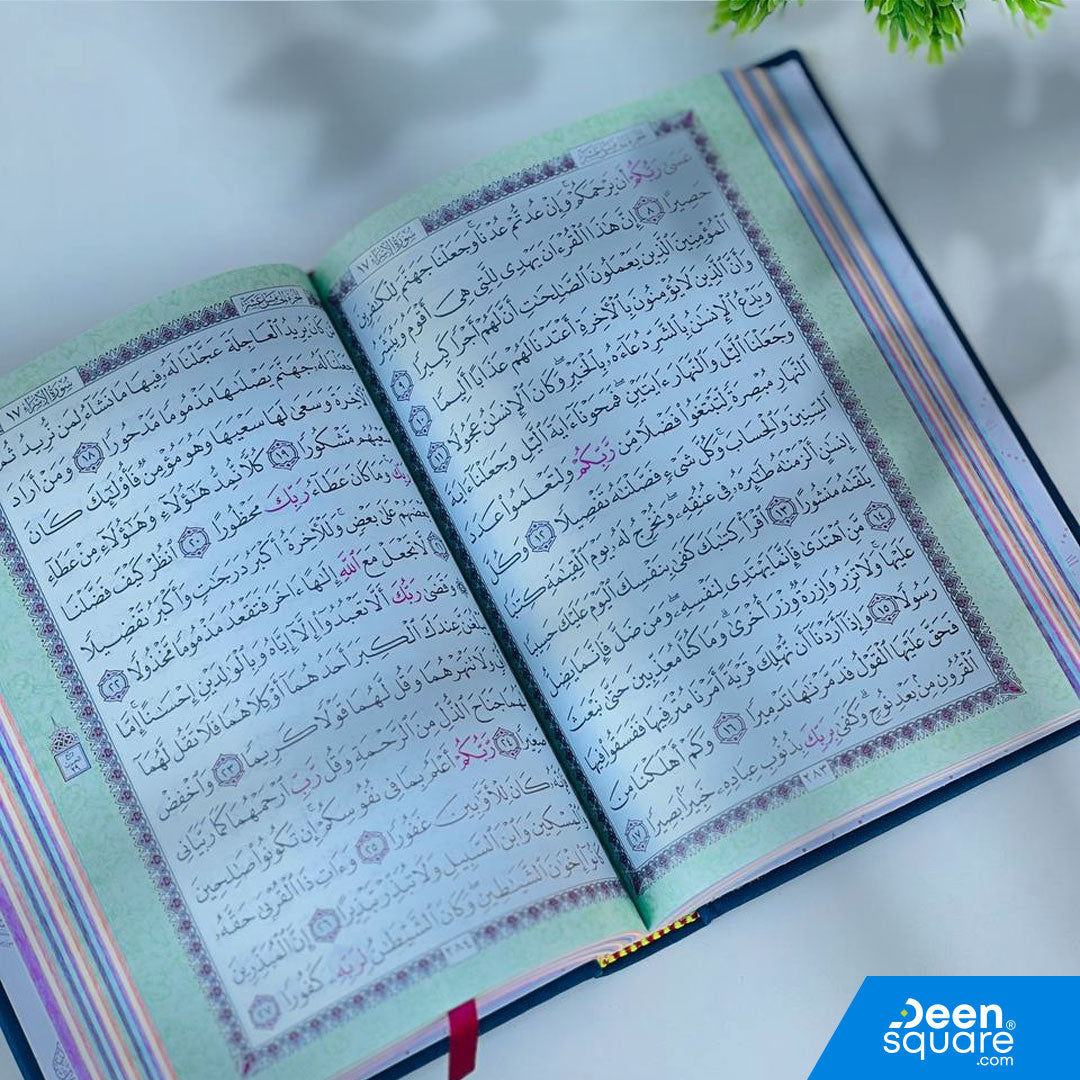 سُورَةُ الإِسْرَاءِ ١٧
عَسَىٰ رَبُّكُمْ أَن يَرْحَمَكُمْ وَإِنْ عُدتُّمْ عُدْنَا وَجَعَلْنَا جَهَنَّمَ لِلْكَٰفِرِينَ
حَصِيرًا ٨ إِنَّ هَٰذَا ٱلْقُرْءَانَ يَهْدِى لِلَّتِى هِىَ أَقْوَمُ وَيُبَشِّرُ
ٱلْمُؤْمِنِينَ ٱلَّذِينَ يَعْمَلُونَ ٱلصَّٰلِحَٰتِ أَنَّ لَهُمْ أَجْرًا كَبِيرًا ٩
وَأَنَّ ٱلَّذِينَ لَا يُؤْمِنُونَ بِٱلْءَاخِرَةِ أَعْتَدْنَا لَهُمْ عَذَابًا أَلِيمًا ١٠
وَيَدْعُ ٱلْإِنسَٰنُ بِٱلشَّرِّ دُعَآءَهُۥ بِٱلْخَيْرِ وَكَانَ ٱلْإِنسَٰنُ عَجُولًا ١١
وَجَعَلْنَا ٱلَّيْلَ وَٱلنَّهَارَ ءَايَتَيْنِ فَمَحَوْنَآ ءَايَةَ ٱلَّيْلِ وَجَعَلْنَآ ءَايَةَ
ٱلنَّهَارِ مُبْصِرَةً لِّتَبْتَغُوا۟ فَضْلًا مِّن رَّبِّكُمْ وَلِتَعْلَمُوا۟ عَدَدَ
ٱلسِّنِينَ وَٱلْحِسَابَ وَكُلَّ شَىْءٍ فَصَّلْنَٰهُ تَفْصِيلًا ١٢ وَكُلَّ
إِنسَٰنٍ أَلْزَمْنَٰهُ طَٰٓئِرَهُۥ فِى عُنُقِهِۦ وَنُخْرِجُ لَهُۥ يَوْمَ ٱلْقِيَٰمَةِ كِتَٰبًا
يَلْقَىٰهُ مَنشُورًا ١٣ ٱقْرَأْ كِتَٰبَكَ كَفَىٰ بِنَفْسِكَ ٱلْيَوْمَ عَلَيْكَ حَسِيبًا
١٤ مَّنِ ٱهْتَدَىٰ فَإِنَّمَا يَهْتَدِى لِنَفْسِهِۦ وَمَن ضَلَّ فَإِنَّمَا يَضِلُّ
عَلَيْهَا وَلَا تَزِرُ وَازِرَةٌ وِزْرَ أُخْرَىٰ وَمَا كُنَّا مُعَذِّبِينَ حَتَّىٰ نَبْعَثَ
رَسُولًا ١٥ وَإِذَآ أَرَدْنَآ أَن نُّهْلِكَ قَرْيَةً أَمَرْنَا مُتْرَفِيهَا فَفَسَقُوا۟ فِيهَا
فَحَقَّ عَلَيْهَا ٱلْقَوْلُ فَدَمَّرْنَٰهَا تَدْمِيرًا ١٦ وَكَمْ أَهْلَكْنَا مِنَ
ٱلْقُرُونِ مِنۢ بَعْدِ نُوحٍ وَكَفَىٰ بِرَبِّكَ بِذُنُوبِ عِبَادِهِۦ خَبِيرًۢا بَصِيرًا ١٧
٢٨٣
سُورَةُ الإِسْرَاءِ ١٧
كَانَ يُرِيدُ ٱلْعَاجِلَةَ عَجَّلْنَا لَهُۥ فِيهَا مَا نَشَآءُ لِمَن نُّرِيدُ ثُمَّ
لَهُۥ جَهَنَّمَ يَصْلَىٰهَا مَذْمُومًا مَّدْحُورًا ١٨ وَمَنْ أَرَادَ
ٱلْءَاخِرَةَ وَسَعَىٰ لَهَا سَعْيَهَا وَهُوَ مُؤْمِنٌ فَأُو۟لَٰٓئِكَ كَانَ
سَعْيُهُم مَّشْكُورًا ١٩ كُلًّا نُّمِدُّ هَٰٓؤُلَآءِ وَهَٰٓؤُلَآءِ مِنْ عَطَآءِ
رَبِّكَ وَمَا كَانَ عَطَآءُ رَبِّكَ مَحْظُورًا ٢٠ ٱنظُرْ كَيْفَ فَضَّلْنَا
بَعْضَهُمْ عَلَىٰ بَعْضٍ وَلَلْءَاخِرَةُ أَكْبَرُ دَرَجَٰتٍ وَأَكْبَرُ تَفْضِيلًا
لَّا تَجْعَلْ مَعَ ٱللَّهِ إِلَٰهًا ءَاخَرَ فَتَقْعُدَ مَذْمُومًا مَّخْذُولًا ٢٢
وَقَضَىٰ رَبُّكَ أَلَّا تَعْبُدُوٓا۟ إِلَّآ إِيَّاهُ وَبِٱلْوَٰلِدَيْنِ إِحْسَٰنًا إِمَّا
عِندَكَ ٱلْكِبَرَ أَحَدُهُمَآ أَوْ كِلَاهُمَا فَلَا تَقُل لَّهُمَآ
وَلَا تَنْهَرْهُمَا وَقُل لَّهُمَا قَوْلًا كَرِيمًا ٢٣ وَٱخْفِضْ
لَهُمَا جَنَاحَ ٱلذُّلِّ مِنَ ٱلرَّحْمَةِ وَقُل رَّبِّ ٱرْحَمْهُمَا كَمَا رَبَّيَانِى
صَغِيرًا ٢٤ رَّبُّكُمْ أَعْلَمُ بِمَا فِى نُفُوسِكُمْ إِن تَكُونُوا۟ صَٰلِحِينَ
كَانَ لِلْأَوَّٰبِينَ غَفُورًا ٢٥ وَءَاتِ ذَا ٱلْقُرْبَىٰ حَقَّهُۥ
وَٱلْمِسْكِينَ وَٱبْنَ ٱلسَّبِيلِ وَلَا تُبَذِّرْ تَبْذِيرًا ٢٦ إِنَّ ٱلْمُبَذِّرِينَ
كَانُوٓا۟ إِخْوَٰنَ ٱلشَّيَٰطِينِ وَكَانَ ٱلشَّيْطَٰنُ لِرَبِّهِۦ كَفُورًا ٢٧
٢٨٤
Deen
square®
.com